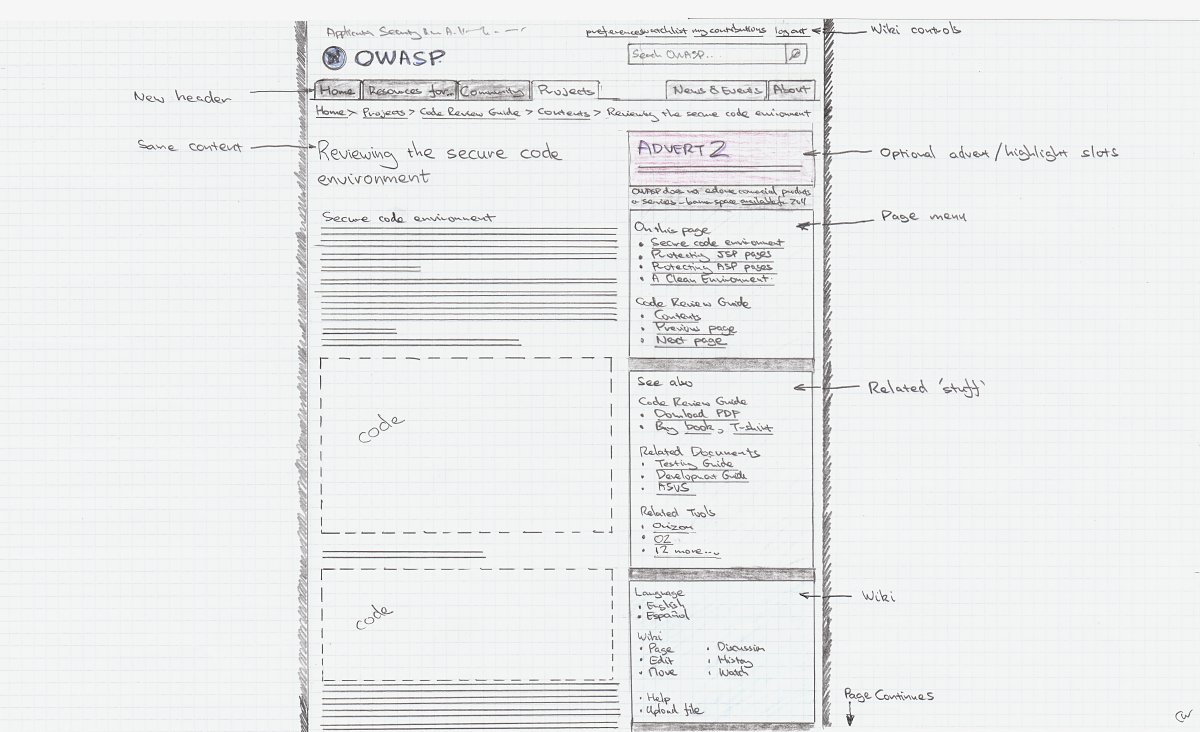 preferences watchlist my contributions log out
Wiki controls
OWASP
Search OWASP..
New header
Home Resources for.. Community Projects News & Events About
Home > Projects > Code Review Guide > Contents > Reviewing the secure code enviroment
Same content
Reviewing the secure code
environment
ADVERT 2
Optional advert/highlight slots
OWASP does not endorse commercial products
or services - banner space available for
Page menu
Secure code environment
On this page
• Secure code environment
• Protecting JSP pages
• Protecting ASP pages
• A Clean Environment
Code Review Guide
• Contents
• Previous page
• Next page
code
See also
Related 'stuff'
Code Review Guide
• Download PDF
• Buy book, T-shirt
Related Documents
• Testing Guide
• Development Guide
• ASVS
Related Tools
• Orizon
• O2
• 12 more....
code
Language
• English
• Español
Wiki
Wiki
• Page • Discussion
• Edit • History
• Move • Watch
• Help
• Upload file
Page Continues
CW